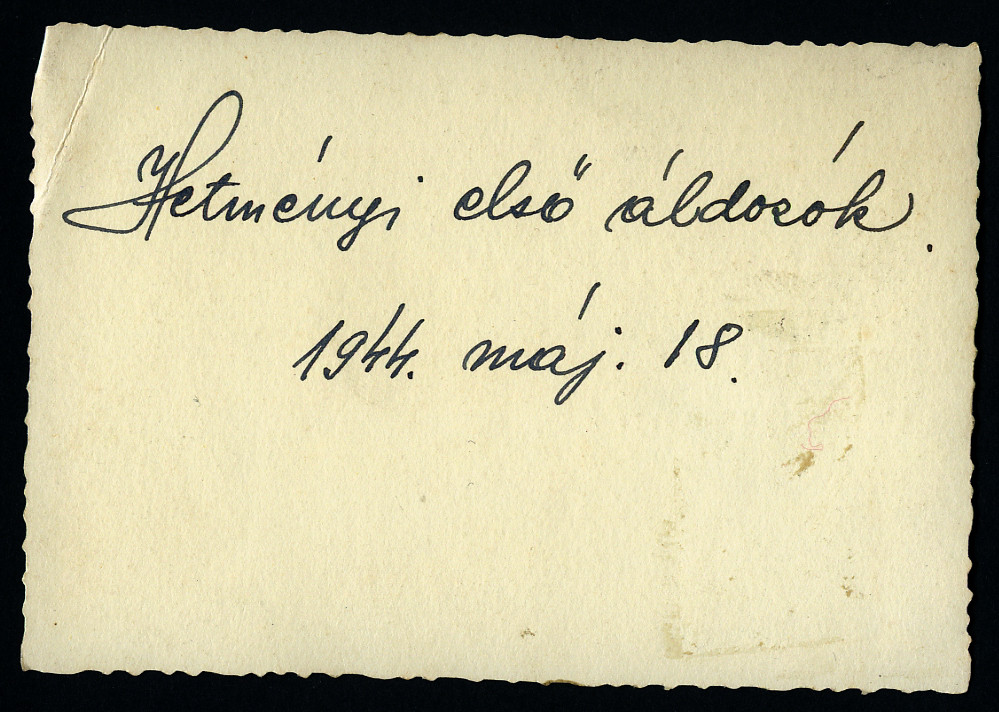 Hetményi első áldozók.
1944. máj. 18.